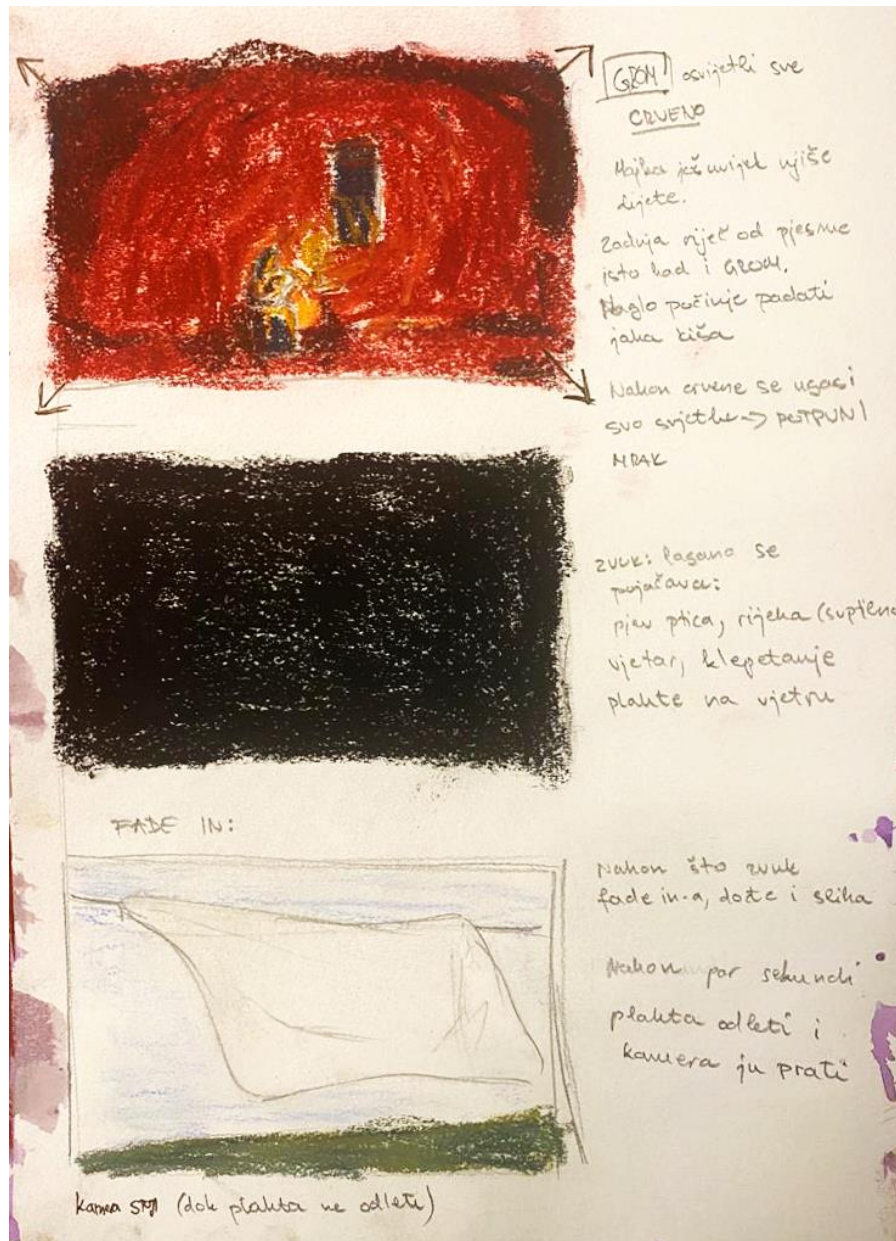 GROM osvijetli sve
CRVENO
Majka još uvijek njiše
dijete.
Zadnja riječ od pjesme
isto kad i GROM.
Naglo počinje padati
jaka kiša
Nakon crvene se ugasi
svo svjetlo -> POTPUNI
MRAK
ZVUK: lagano se
pojačava:
pjev ptica, rijeka (suptilno
vjetar, klepetanje
plahte na vjetru
FADE IN:
Nakon što zvuk
fade in-a, dođe i slika
Nakon par sekundi
plahta odleti i
kamera ju prati
kamera STOJI (dok plahta ne odleti)